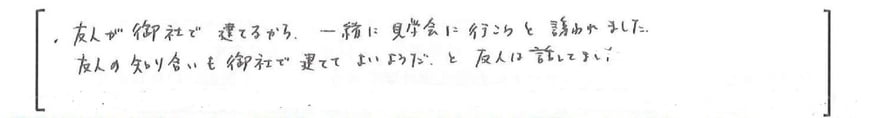 ・友人が御社で建てるから、一緒に見学会に行こうと誘われました。
友人の知り合いも御社で建ててよいようだ、と友人は話してまし